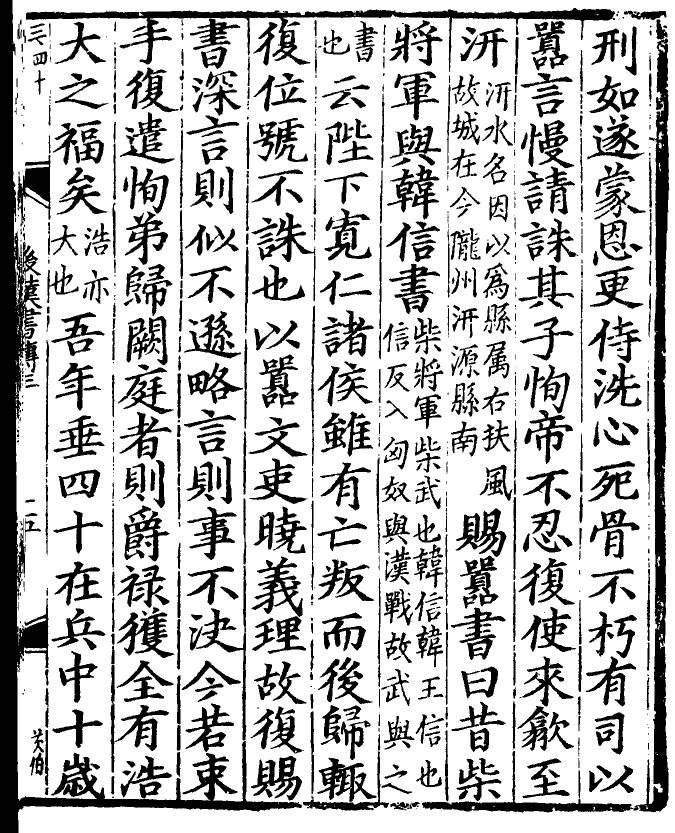 刑如遂蒙恩更侍洗心死骨不朽有司以
囂言慢請誅其子恂帝不忍復使來歙至
汧汧水名因以爲縣属右扶風故城在今隴州汧源縣南賜囂書曰昔柴
將軍與韓信書柴將軍柴武也韓信韓王信也信反入匈奴與漢戰故武與之
書也云陛下寬仁諸侯雖有亡叛而後歸輒
復位號不誅也以囂文吏曉義理故復賜
書深言則似不遜略言則事不决今若束
手復遣恂弟歸闕庭者則爵禄獲全有浩
大之福矣浩亦大也吾年垂四十在兵中十歲
三四十
後漢書傳三